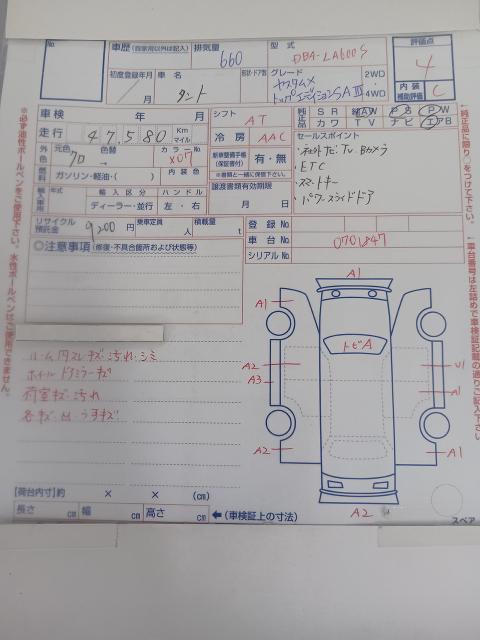 No.
車歴 (自家用以外は記入) 排気量 660 型式 DBA-LA600S 評価点 4
初度登録年月 / 月 車名 タント 形状・ドア数 グレード カスタムX トップエディションSAⅢ 2WD 4WD
内装補助評価 C
車検 年 月 シフト AT 純正品 SR AW PS PW
走行 47,580 Km マイル 冷房 AAC 革 カワ TV ナビ エアB
外色 元色 クロ 色替 → カラーNo X07 新車整備手帳(保証書付) 有・無 ※書類と一緒に保管して下さい。
セールスポイント
・ナビ TV Bカメラ
・ETC
・スマートキー
・パワースライドドア
燃料 ガソリン・軽油・( ) 内装色
輸入車用 年式 輸入区分 ディーラー・並行 ハンドル 左・右 譲渡書類有効期限 月 日
リサイクル預託金 9200円 乗車定員 人 積載量 t 登録No
車台No 0701847
シリアルNo
◎注意事項(修復・不具合箇所および状態等)
ルーム内スレキズ汚れ・シミ
ホイールドアミラーキズ
荷室キズ・汚れ
各キズ 凹 うすキズ
A1
A1
トビA
A2
A3
U1
A1
A2
A1
A2
【荷台内寸】約 × × (cm)
長さ cm 幅 cm 高さ cm ←(車検証上の寸法)
スペア
※必ず油性ボールペンをご使用下さい。水性ボールペンはご使用できません。
↑純正品に限り○をつけて下さい。
↓車台番号は左詰めで車検証記載の通りご記入下さい。